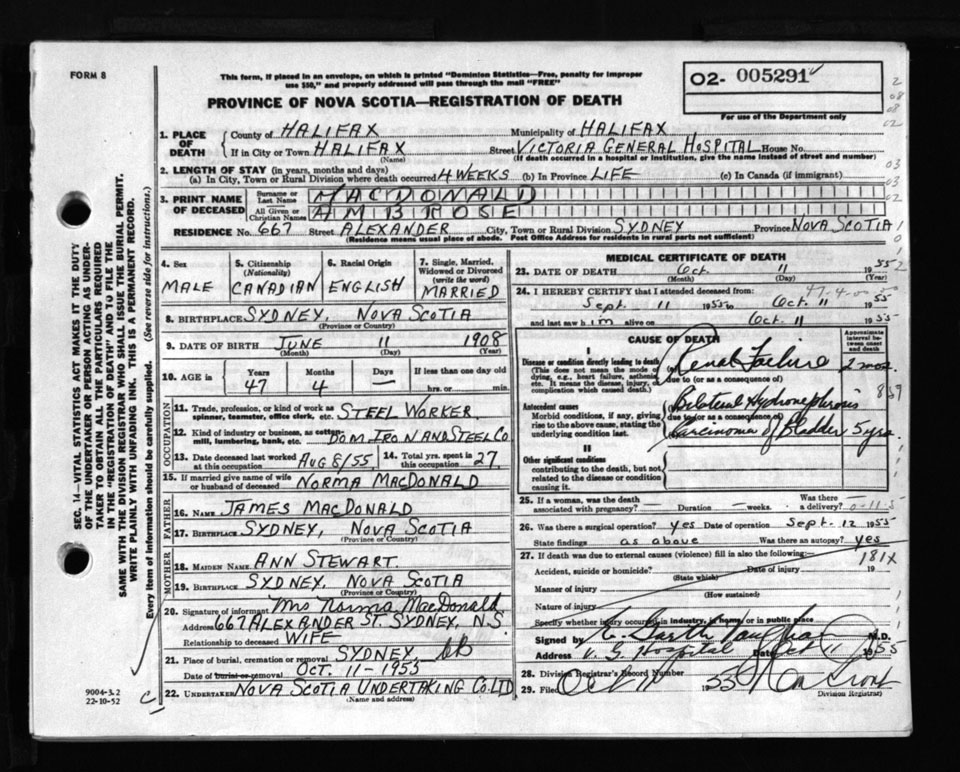 FORM 8
This form, if placed in an envelope, on which is printed "Dominion Statistics—Free, penalty for improper
use $50," and properly addressed will pass through the mail "FREE"
PROVINCE OF NOVA SCOTIA—REGISTRATION OF DEATH
02- 005291
For use of the Department only
1. PLACE OF DEATH
County of HALIFAX Municipality of HALIFAX
If in City or Town HALIFAX Street VICTORIA GENERAL HOSPITAL House No.
(Name) (If death occurred in a hospital or institution, give the name instead of street and number)
2. LENGTH OF STAY (in years, months and days)
(a) In City, Town or Rural Division where death occurred 4 WEEKS (b) In Province LIFE (c) In Canada (if immigrant)
3. PRINT NAME OF DECEASED
Surname or Last Name MACDONALD
All Given or Christian Names AMBROSE
RESIDENCE No. 667 Street ALEXANDER City, Town or Rural Division SYDNEY Province NOVA SCOTIA
(Residence means usual place of abode. Post Office Address for residents in rural parts not sufficient)
4. Sex MALE
5. Citizenship (Nationality) CANADIAN
6. Racial Origin ENGLISH
7. Single, Married, Widowed or Divorced (write the word) MARRIED
8. BIRTHPLACE SYDNEY, NOVA SCOTIA
(Province or Country)
9. DATE OF BIRTH JUNE 11 1908
(Month) (Day) (Year)
10. AGE in Years Months Days If less than one day
47 4 — hrs. or min.
11. Trade, profession, or kind of work as spinner, teamster, office clerk, etc. STEEL WORKER
12. Kind of industry or business, as cotton-mill, lumbering, bank, etc. DOM. IRON AND STEEL CO
13. Date deceased last worked at this occupation AUG 8/55 14. Total yrs. spent in this occupation 27
15. If married give name of wife or husband of deceased NORMA MACDONALD
FATHER
16. NAME JAMES MACDONALD
17. BIRTHPLACE SYDNEY, NOVA SCOTIA
(Province or Country)
MOTHER
18. MAIDEN NAME ANN STEWART.
19. BIRTHPLACE SYDNEY, NOVA SCOTIA
(Province or Country)
20. Signature of informant Mrs Norma MacDonald
Address 667 ALEXANDER ST. SYDNEY, N.S
Relationship to deceased WIFE
21. Place of burial, cremation or removal SYDNEY
Date of burial or removal OCT. 11-1955
22. UNDERTAKER NOVA SCOTIA UNDERTAKING CO. LTD
(Name and address)
MEDICAL CERTIFICATE OF DEATH
23. DATE OF DEATH Oct 11 1955
(Month) (Day) (Year)
24. I HEREBY CERTIFY that I attended deceased from:
Sept. 11 1955 to Oct 11 1955
and last saw him alive on Oct 11 1955
CAUSE OF DEATH
Approximate interval between onset and death
I
Disease or condition directly leading to death
(This does not mean the mode of dying, e.g., heart failure, asthenia, etc. It means the disease, injury, or complication which caused death.)
(a) Renal Failure 2 mos.
due to (or as a consequence of)
Antecedent causes
Morbid conditions, if any, giving rise to the above cause, stating the underlying condition last.
Bilateral Hydronephrosis
due to (or as a consequence of)
Carcinoma of Bladder 5 yrs.
II
Other significant conditions
contributing to the death, but not related to the disease or condition causing it.
25. If a woman, was the death associated with pregnancy? — Duration — weeks. Was there a delivery?
26. Was there a surgical operation? yes Date of operation Sept. 12 1955
State findings as above Was there an autopsy? yes
27. If death was due to external causes (violence) fill in also the following:— 181X
Accident, suicide or homicide? Date of injury 19
(State which)
Manner of injury
(How sustained)
Nature of injury
Specify whether injury occurred in industry, in home, or in public place
Signed by M.D.
Address V. G. Hospital Date Oct 11 1955
28. Division Registrar's Record Number
29. Filed Oct 11 1955
Division Registrar
SEC. 14—VITAL STATISTICS ACT MAKES IT THE DUTY
OF THE UNDERTAKER OR PERSON ACTING AS UNDER-
TAKER TO OBTAIN ALL THE PARTICULARS REQUIRED
IN THE "REGISTRATION OF DEATH" AND TO FILE THE
SAME WITH THE DIVISION REGISTRAR WHO SHALL ISSUE THE BURIAL PERMIT.
WRITE PLAINLY WITH UNFADING INK. THIS IS A PERMANENT RECORD.
Every item of information should be carefully supplied. (See reverse side for instructions.)
9004-3.2
22-10-52